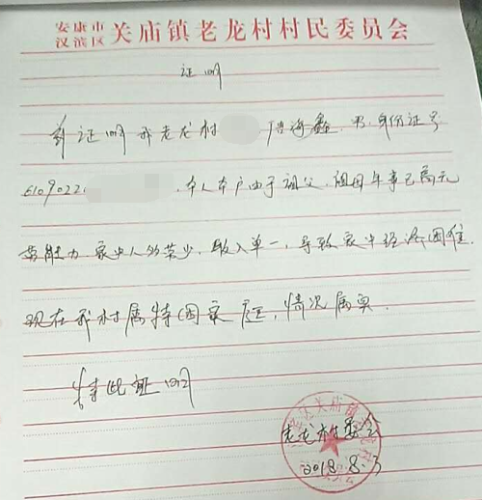 安康市
汉滨区 关庙镇老龙村村民委员会
证明
兹证明我老龙村 男 身份证号
6109022 本人本户由于祖父、祖母年事已高无
劳能力 家中人多劳少、收入单一、导致家中经济困难.
现在我村属特困家庭,情况属实.
特此证明
老龙村委会
2018.8.